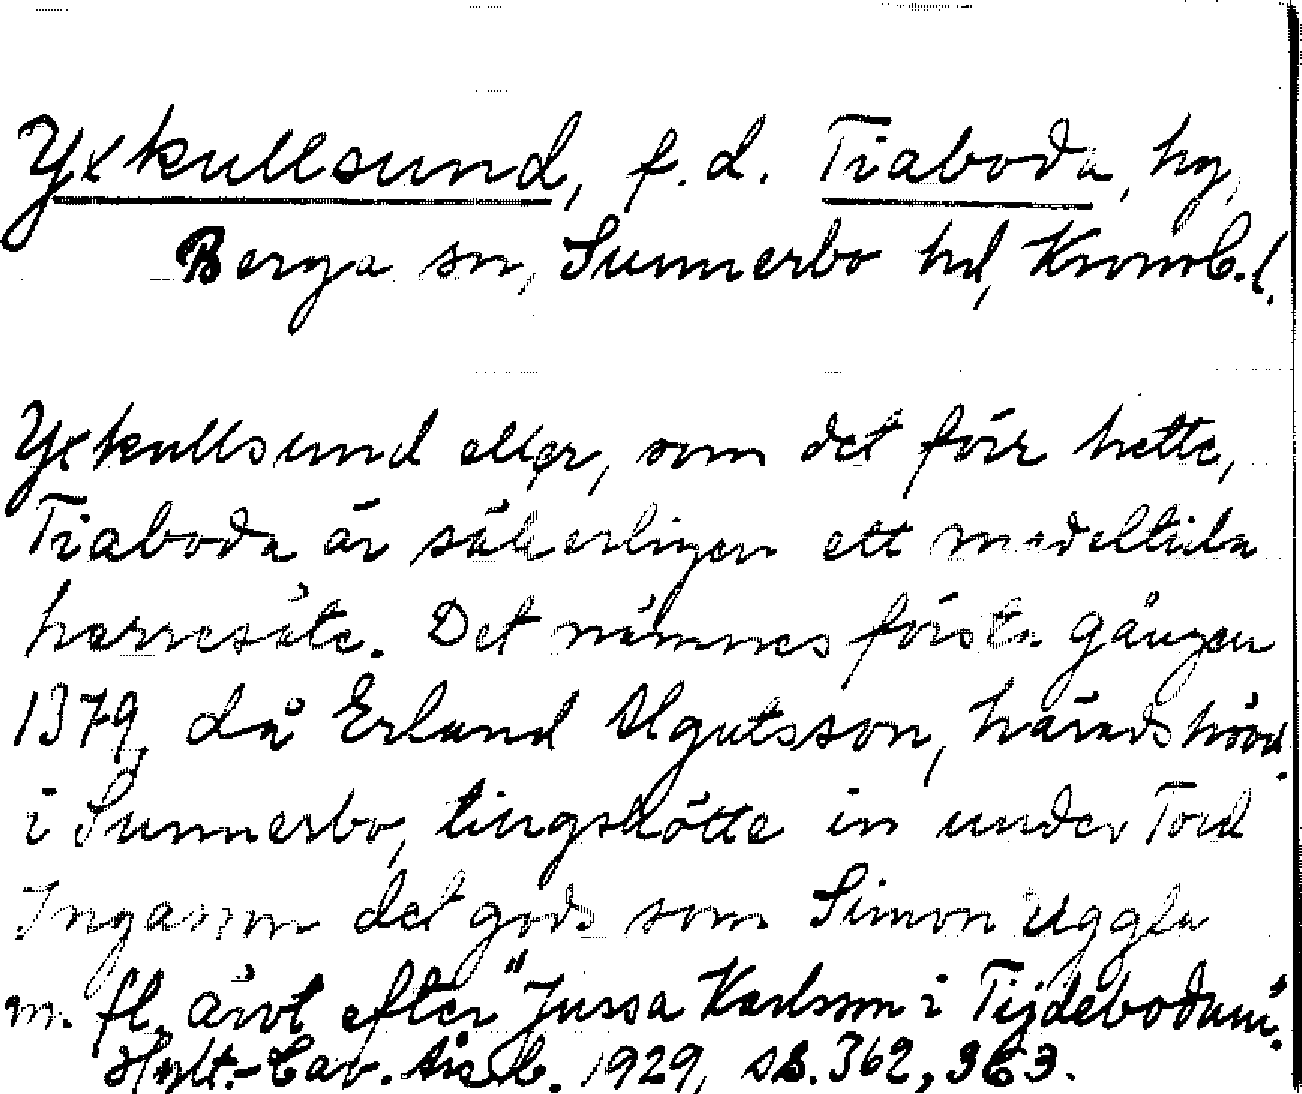 Yxkullsund, f.d. Tiaboda, hg,
Berga sn, Sunnerbo hd, Kronob.l.
Yxkullsund eller, som det förr hette,
Tiaboda är säkerligen ett medeltida
herresäte. Det nämnes första gången
1379, då Erland Ugutsson, häradshövd.
i Sunnerbo, tingskötte in under Tord
Ingasson det gods som Simon Uggla
m. fl. ärvt efter "Jussa Karlsson i Tijdebodum".
Hylt.-Cav. årsb. 1929, ss. 362, 363.